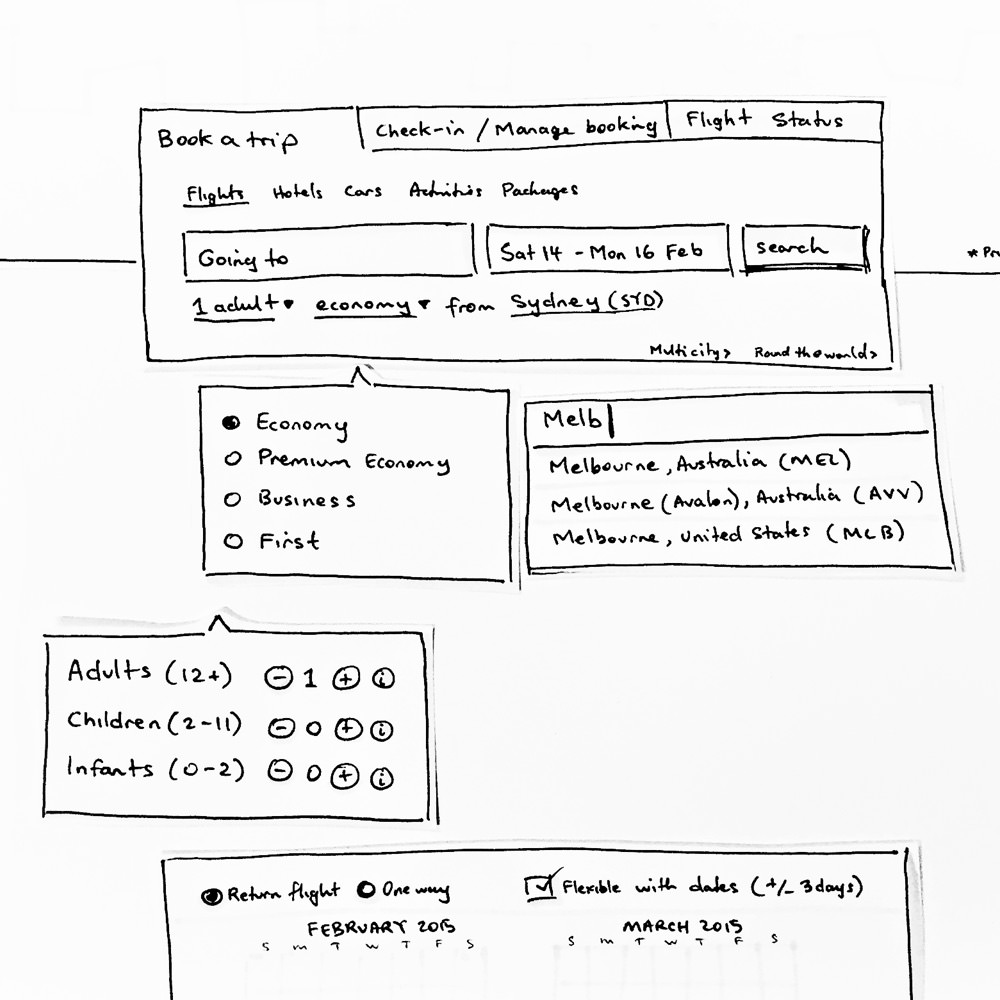 Book a trip
Check-in / Manage booking
Flight Status
Flights Hotels Cars Activities Packages
Going to
Sat 14 - Mon 16 Feb
search
1 adult economy from Sydney (SYD)
Multicity > Round the world >
Economy
Premium Economy
Business
First
Melb
Melbourne, Australia (MEL)
Melbourne (Avalon), Australia (AVV)
Melbourne, United States (MLB)
Adults (12+) - 1 + i
Children (2-11) - 0 + i
Infants (0-2) - 0 + i
Return flight One way
Flexible with dates (+/- 3 days)
FEBRUARY 2015
S M T W T F S
MARCH 2015
S M T W T F S